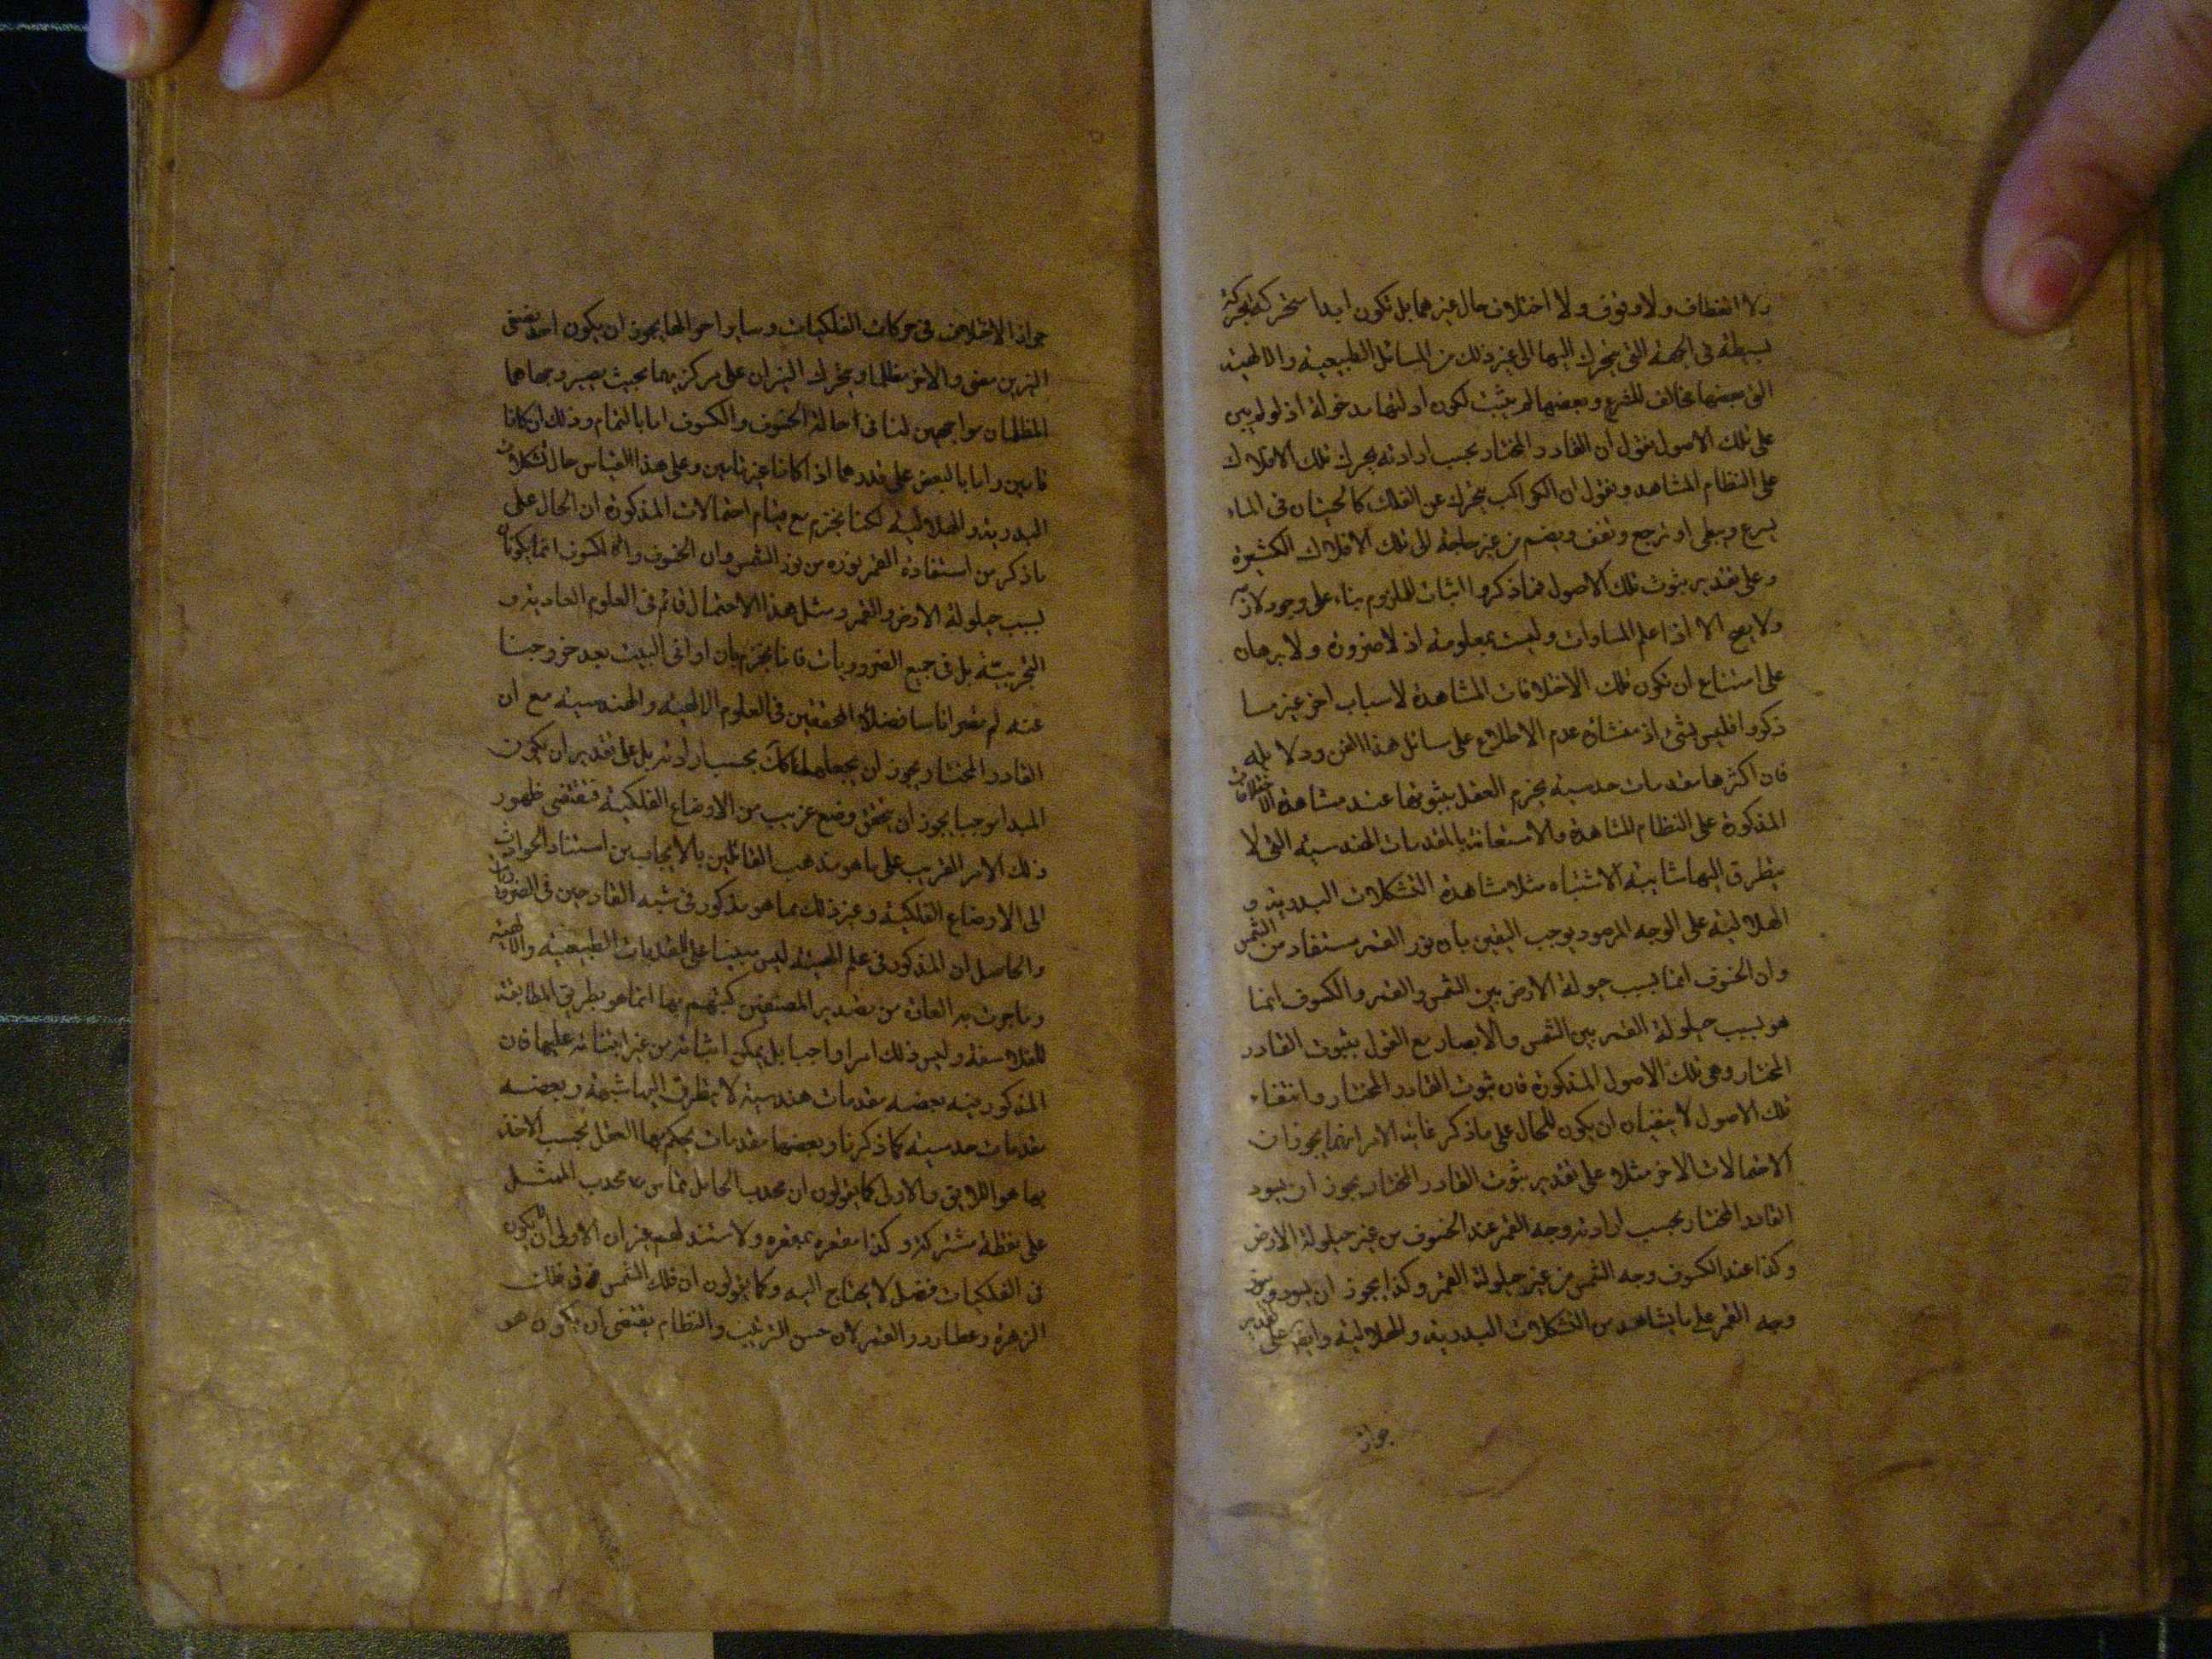 ولا انعطاف ولا وقوف ولا اختلاف حال غيرهما بل تكون ابدا متحركة بحركة
بسيطة فى الجهة التى يتحرك اليها الى غير ذلك من المسائل الطبيعية والالهية
التى بعضها مخالف للشرع وبعضها لم يثبت لكون ادلتها مدخولة اذ لو لم يبن
على تلك الاصول نقول ان القادر المختار بحسب ارادته يحرك تلك الافلاك
على النظام المشاهد ونقول ان الكواكب يتحرك عن الفلك كالحيتان فى الماء
يسرع ويبطى او ترجع وتقف ويقيم من غير حاجة الى تلك الافلاك الكثيرة
وعلى تقدير ثبوت تلك الاصول فما ذكروا اثبات للملزوم بناء على وجود لازمه
ولا يصح الا اذا علم المساوات وليست بمعلومة اذ لا ضرورة ولا برهان
على امتناع ان تكون تلك الاختلافات المشاهدة لاسباب اخر غير ما
ذكروا فليس بشئ اذ منشاؤه عدم الاطلاع على مسائل هذا الفن ودلايله
فان اكثرها مقدمات حدسية يجزم العقل بثبوتها عند مشاهدة الاختلافات
المذكورة على النظام المشاهدة والاستعانة بالمقدمات الهندسية التى لا
يتطرق اليها شايبة الاشتباه مثلا مشاهدة التشكلات البدرية و
الهلالية على الوجه المرصود يوجب اليقين بان نور القمر مستفاد من الشمس
وان الخسوف انما بسبب حيولة الارض بين الشمس والقمر والكسوف انما
هو بسبب حيلولة القمر بين الشمس والابصار مع القول بثبوت القادر
المختار ونفى تلك الاصول المذكورة فان ثبوت القادر المختار وانتفاء
تلك الاصول لا ينفيان ان يكون الحال على ما ذكر غاية الامر انهما يجوزان
الاحتمالات الاخر مثلا على تقدير ثبوت القادر المختار يجوز ان يسود
القادر المختار بحسب ارادته وجه القمر عند الخسوف من غير حيلولة الارض
وكذا عند الكسوف وجه الشمس من غير حيلولة القمر وكذا يجوز ان يسود وينور
وجه القمر على ما يشاهد من التشكلات البدرية والهلالية وايضا على تقدير
جواز
جواز الاختلاف فى حركات الفلكيات وساير احوالها يجوز ان يكون احد نصفى
النيرين مضئ والاخر مظلما ويتحرك النيران على مركزيهما بحيث يصير وجهاهما
المظلمان مواجهين لنا فى حالة الخسوف والكسوف اما بالتمام وذلك اذا كانا
تامين واما بالبعض على قدرهما اذا كانا غير تامين وعلى هذا القياس حال التشكلات
البدرية والهلالية لكنا نجزم مع قيام احتمالات المذكورة ان الحال على
ما ذكر من استفادة القمر نوره من نور الشمس وان الخسوف والكسوف انما يكونان
بسبب حيلولة الارض والقمر ومثل هذا الاحتمال قائم فى العلوم العادية و
التجربية بل فى جميع الضروريات فانا نجزم بان اوانى البيت بعد خروجنا
عنه لم تصر اناسا فضلاء محققين فى العلوم الالهية والهندسية مع ان
القادر المختار يجوز ان يجعلها كذلك بحسب ارادته بل على تقدير ان يكون
المبدا موجبا يجوز ان يتحقق وضع غريب من الاوضاع الفلكية فيقتضى ظهور
ذلك الامر الغريب على ما هو مذهب القائلين بالايجاب من استناد الحوادث
الى الاوضاع الفلكية وغير ذلك مما هو مذكور فى شبه القادحين فى الضروريات
والحاصل ان المذكور فى علم الهيئة ليس مبنيا على المقدمات الطبيعية والالهية
وما جرت به العادة من تصدير المصنفين كتبهم بها انما هو بطريق المطابقة
للفلاسفة وليس ذلك امرا واجبا بل يمكن اثباته من غير ابتنائه عليها فان
المذكور فيه بعضه مقدمات هندسية لا يتطرق اليها شبهة وبعضه
مقدمات حدسية كما ذكرنا وبعضها مقدمات يحكم بها العقل بحسب الاخذ
بما هو اللايق والاولى كما يقولون ان محدب الحامل تماس محدب الممثل
على نقطة مشتركة وكذا مقعره بمقعره ولا مستند لهم غير ان الاولى ان لا يكون
فى الفلكيات فضل لا يحتاج اليه وكما يقولون ان فلك الشمس فوق فلك
الزهرة وعطارد والقمر لان حسن الترتيب والنظام يقتضى ان يكون هو